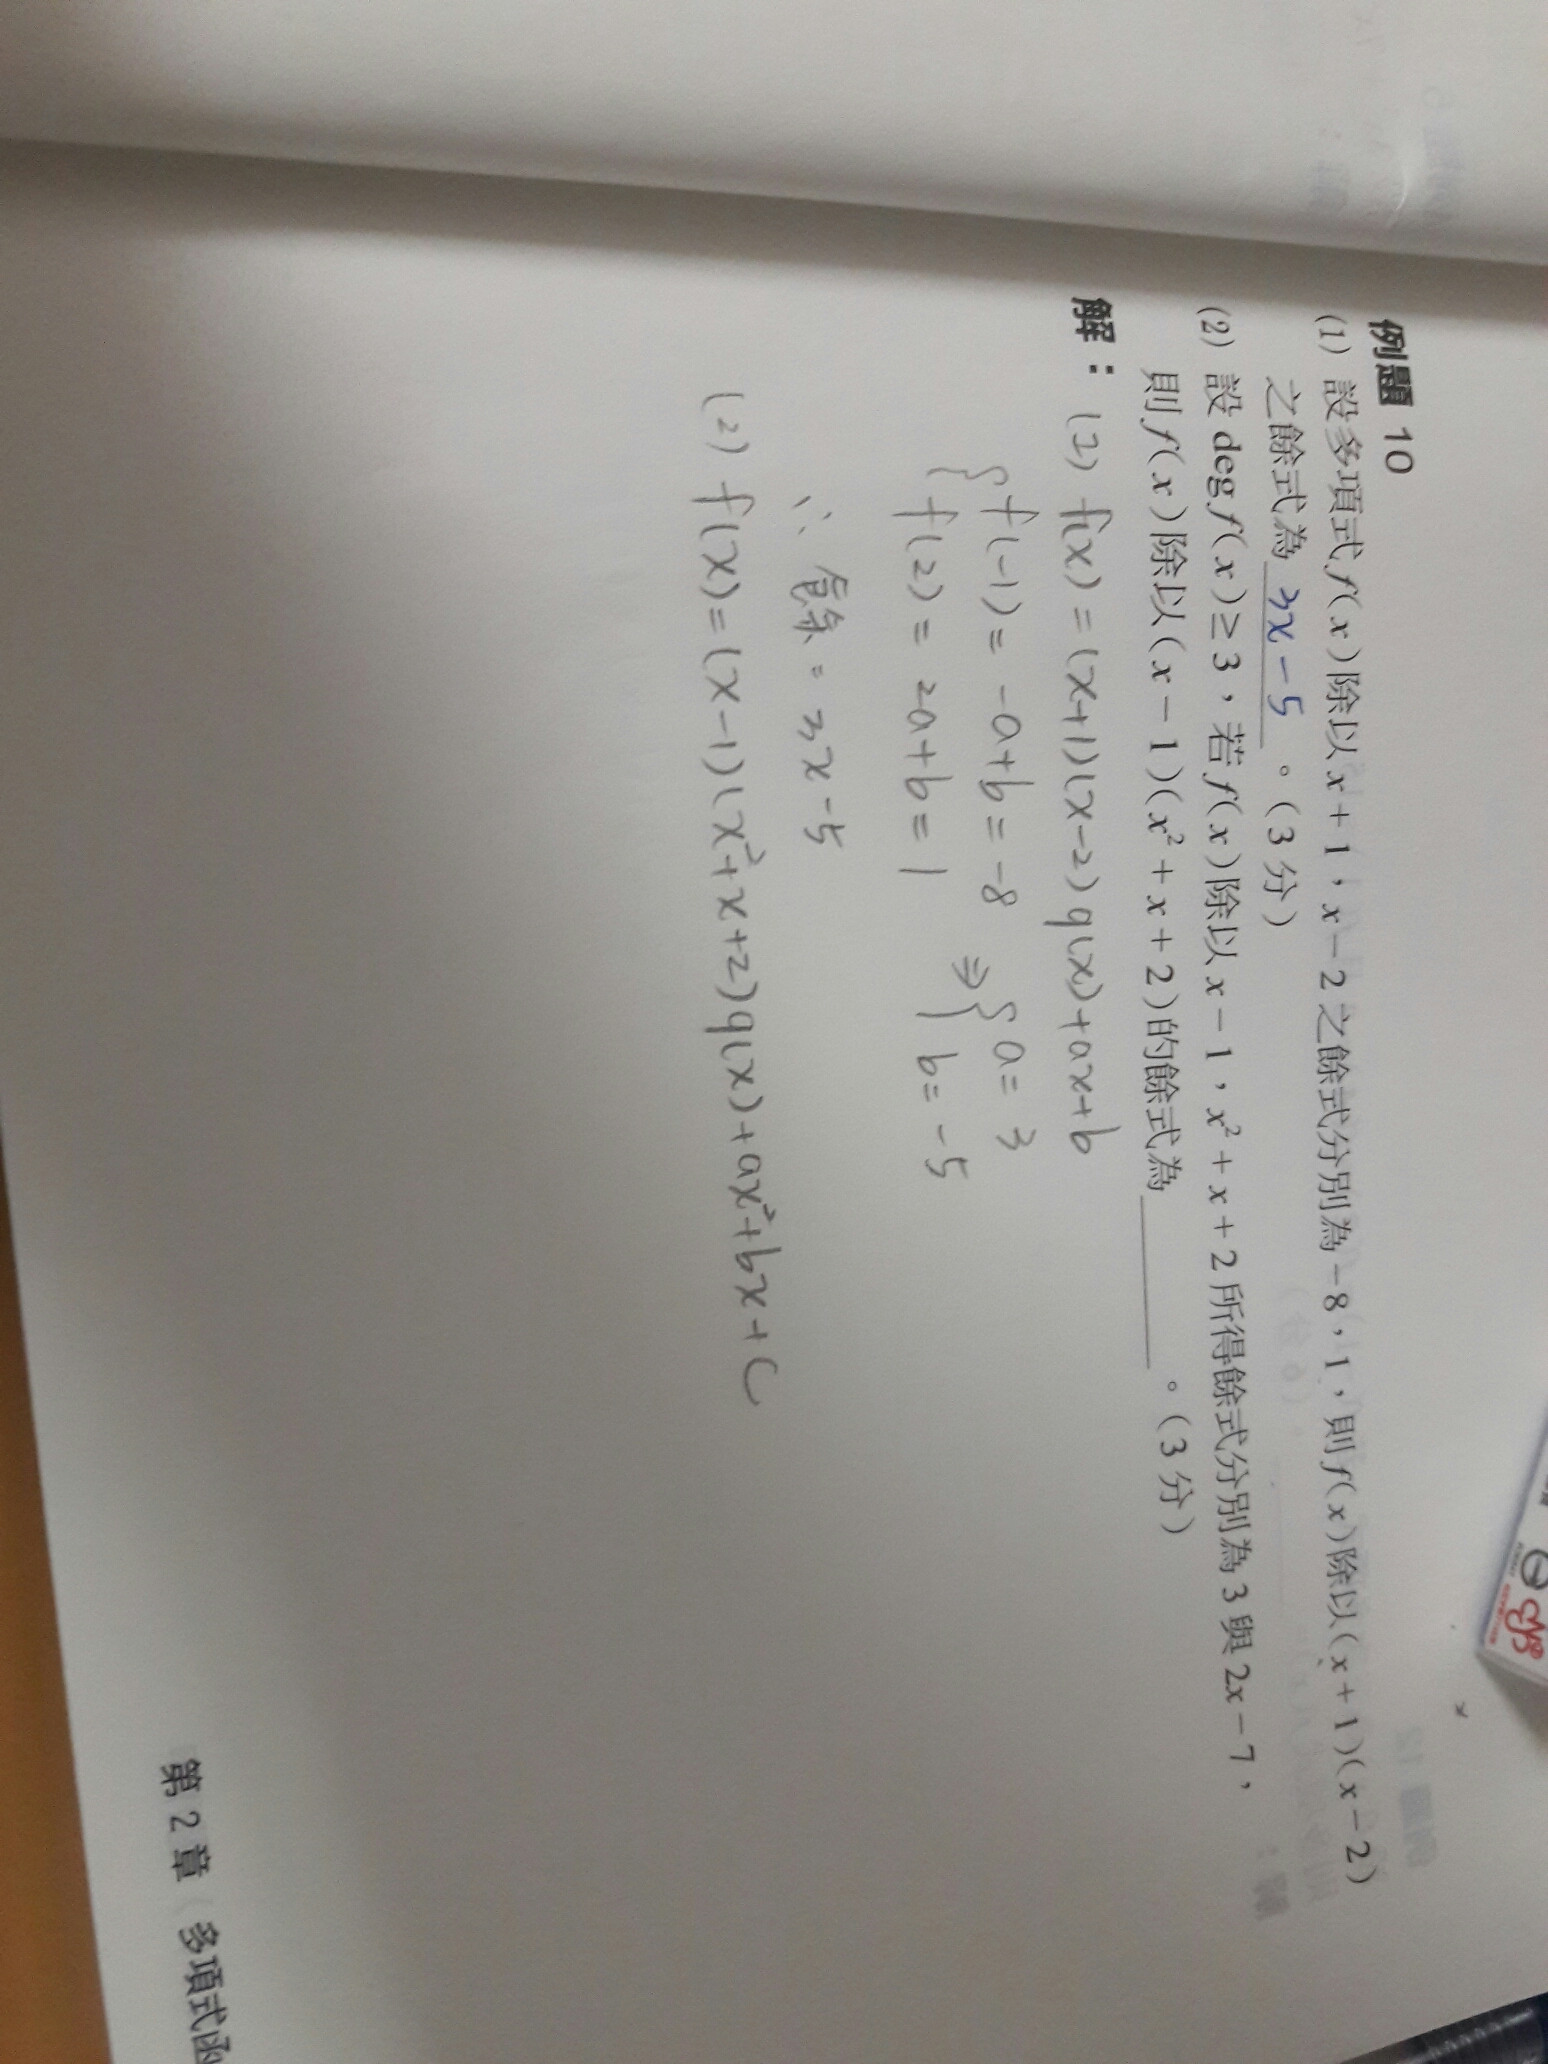 例題 10
(1) 設多項式 f(x) 除以 x+1，x−2 之餘式分別為 −8，1，則 f(x) 除以 (x+1)(x−2)
之餘式為 3x−5 。(3分)
(2) 設 deg f(x)≥3，若 f(x) 除以 x−1，x²+x+2 所得餘式分別為 3 與 2x−7，
則 f(x) 除以 (x−1)(x²+x+2) 的餘式為________。(3分)
解：(1) f(x)=(x+1)(x-2)q(x)+ax+b
{ f(-1)= -a+b=-8 ⇒ { a=3
f(2)= 2a+b=1 b=-5
∴ 餘 = 3x-5
(2) f(x)=(x-1)(x²+x+2)q(x)+ax²+bx+c
第 2 章 多項式函